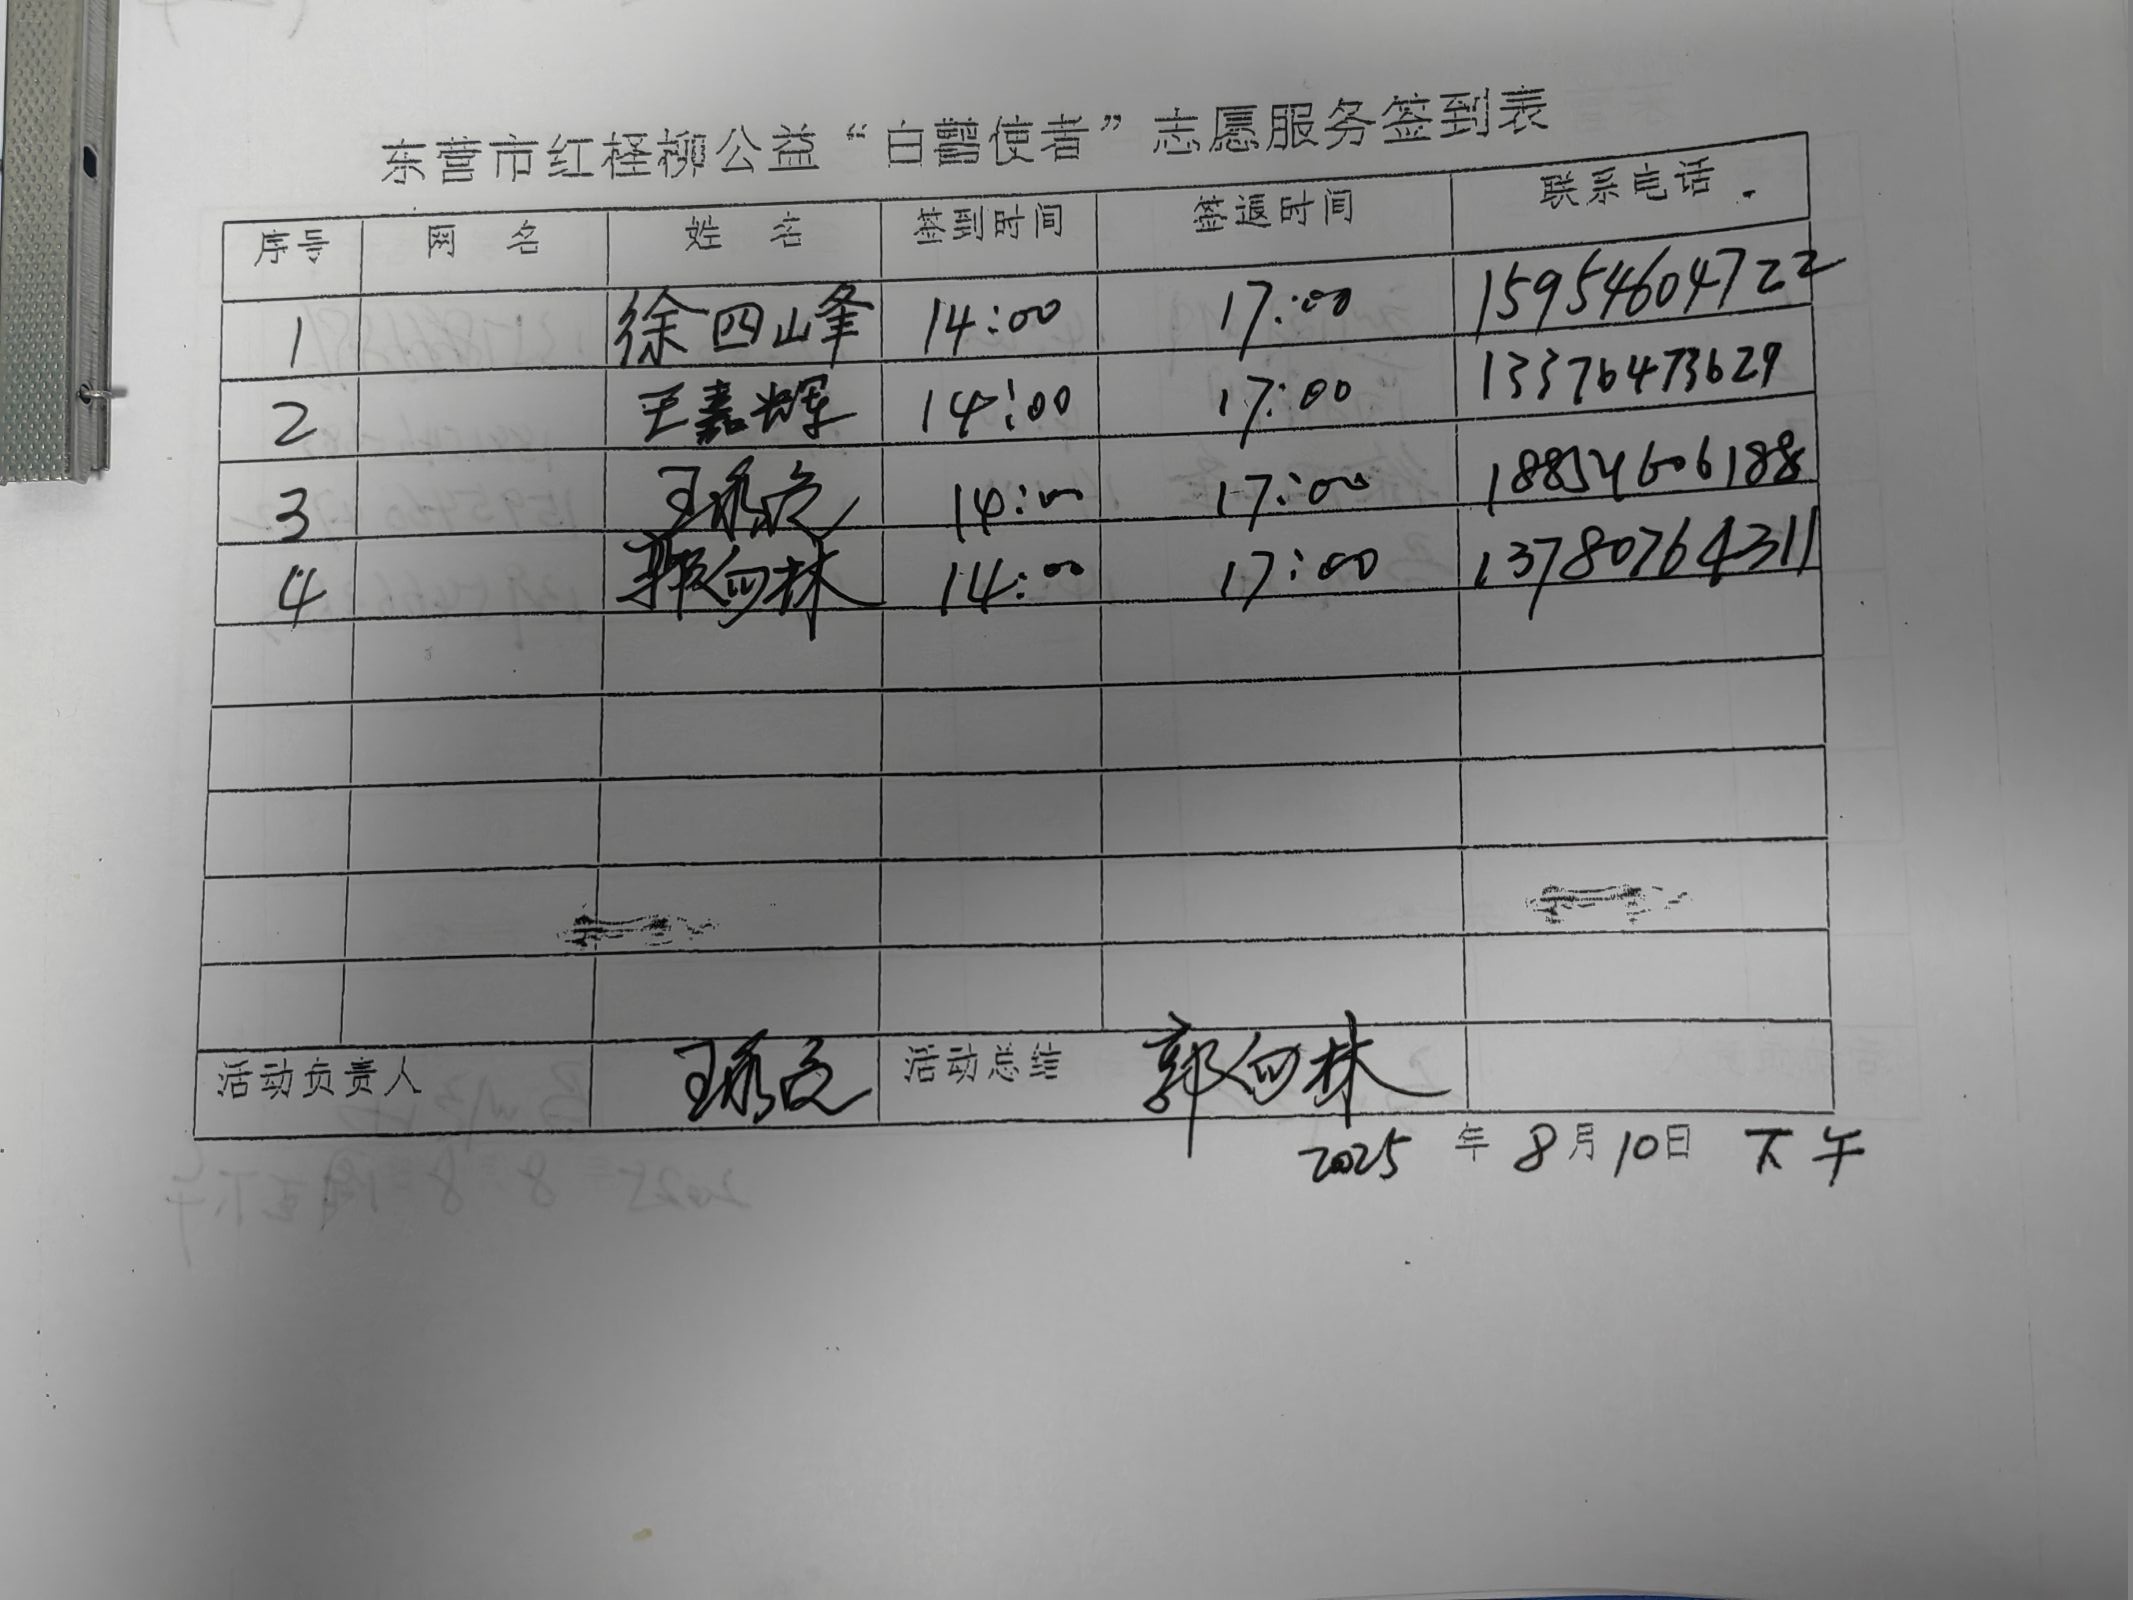 东营市红柽柳公益“白鹭使者”志愿服务签到表
序号 网 名 姓 名 签到时间 签退时间 联系电话
1 徐四峰 14:00 17:00 15954604722
2 王嘉辉 14:00 17:00 13376473629
3 14:00 17:00 18854606188
4 郭向林 14:00 17:00 13780764311
活动负责人 活动总结 郭向林
2025 年 8月10日 下午